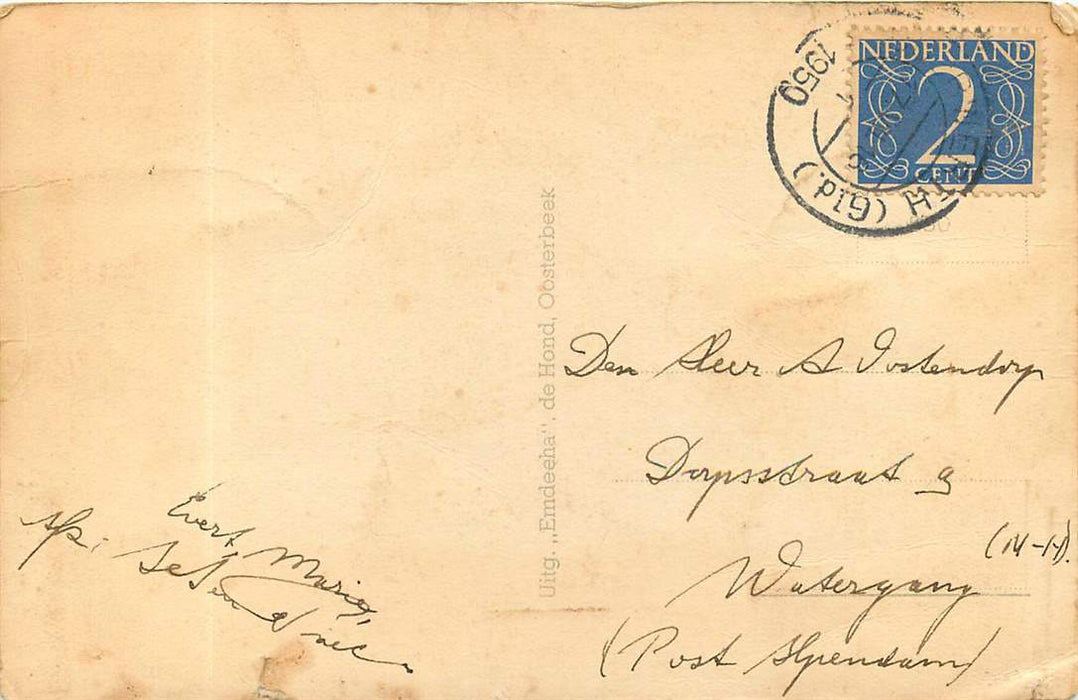 NEDERLAND
2
CENT
1950
(Gld.)
Uitg. „Emdeeha". de Hond, Oosterbeek
Den Heer A Oostendorp
Dorpsstraat 9
Watergang
(N-H).
(Post Ilpendam)
Evert Marie,